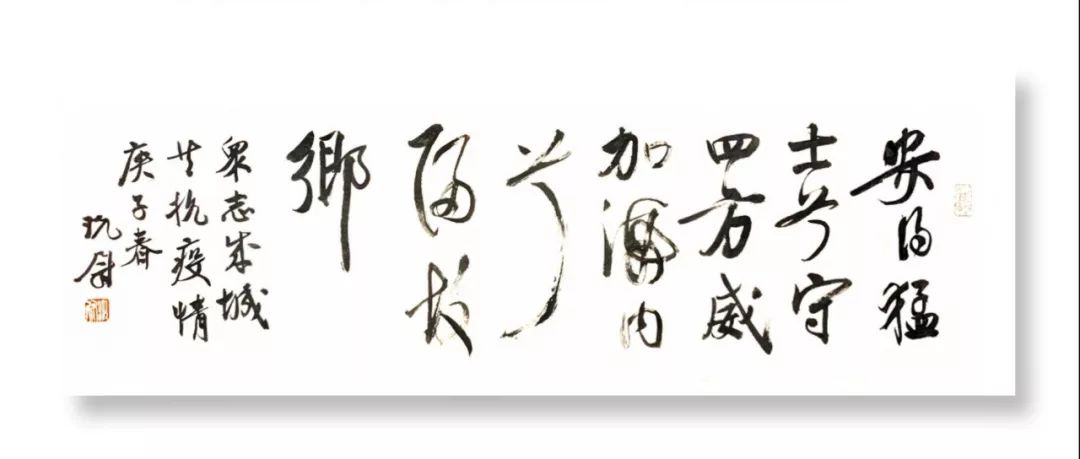 安得猛
士兮守
四方威
加海内
兮
歸故
鄉
衆志成城
共抗疫情
庚子春